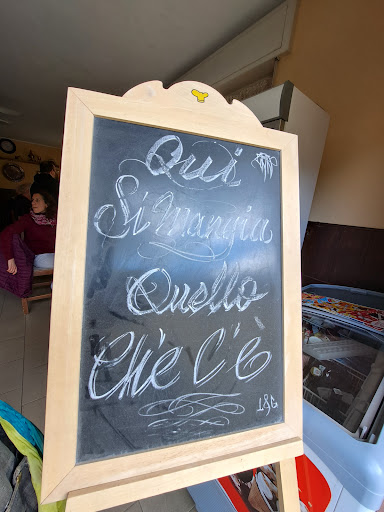 Qui
Si Mangia
Quello
Che C'è